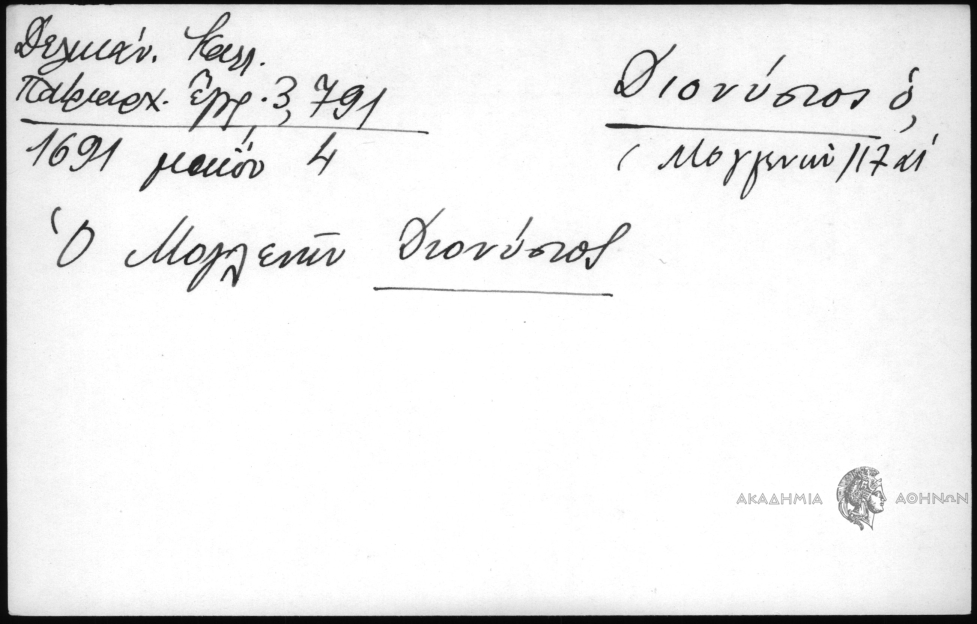 Δελικάν. Καλλ.
Πατριαρχ. Ἔγγρ. 3, 791
1691 μαΐου 4
Διονύσιος ὁ
(Μογλενῶν) 17 αἰ
Ὁ Μογλενῶν Διονύσιος
ΑΚΑΔΗΜΙΑ ΑΘΗΝΩΝ